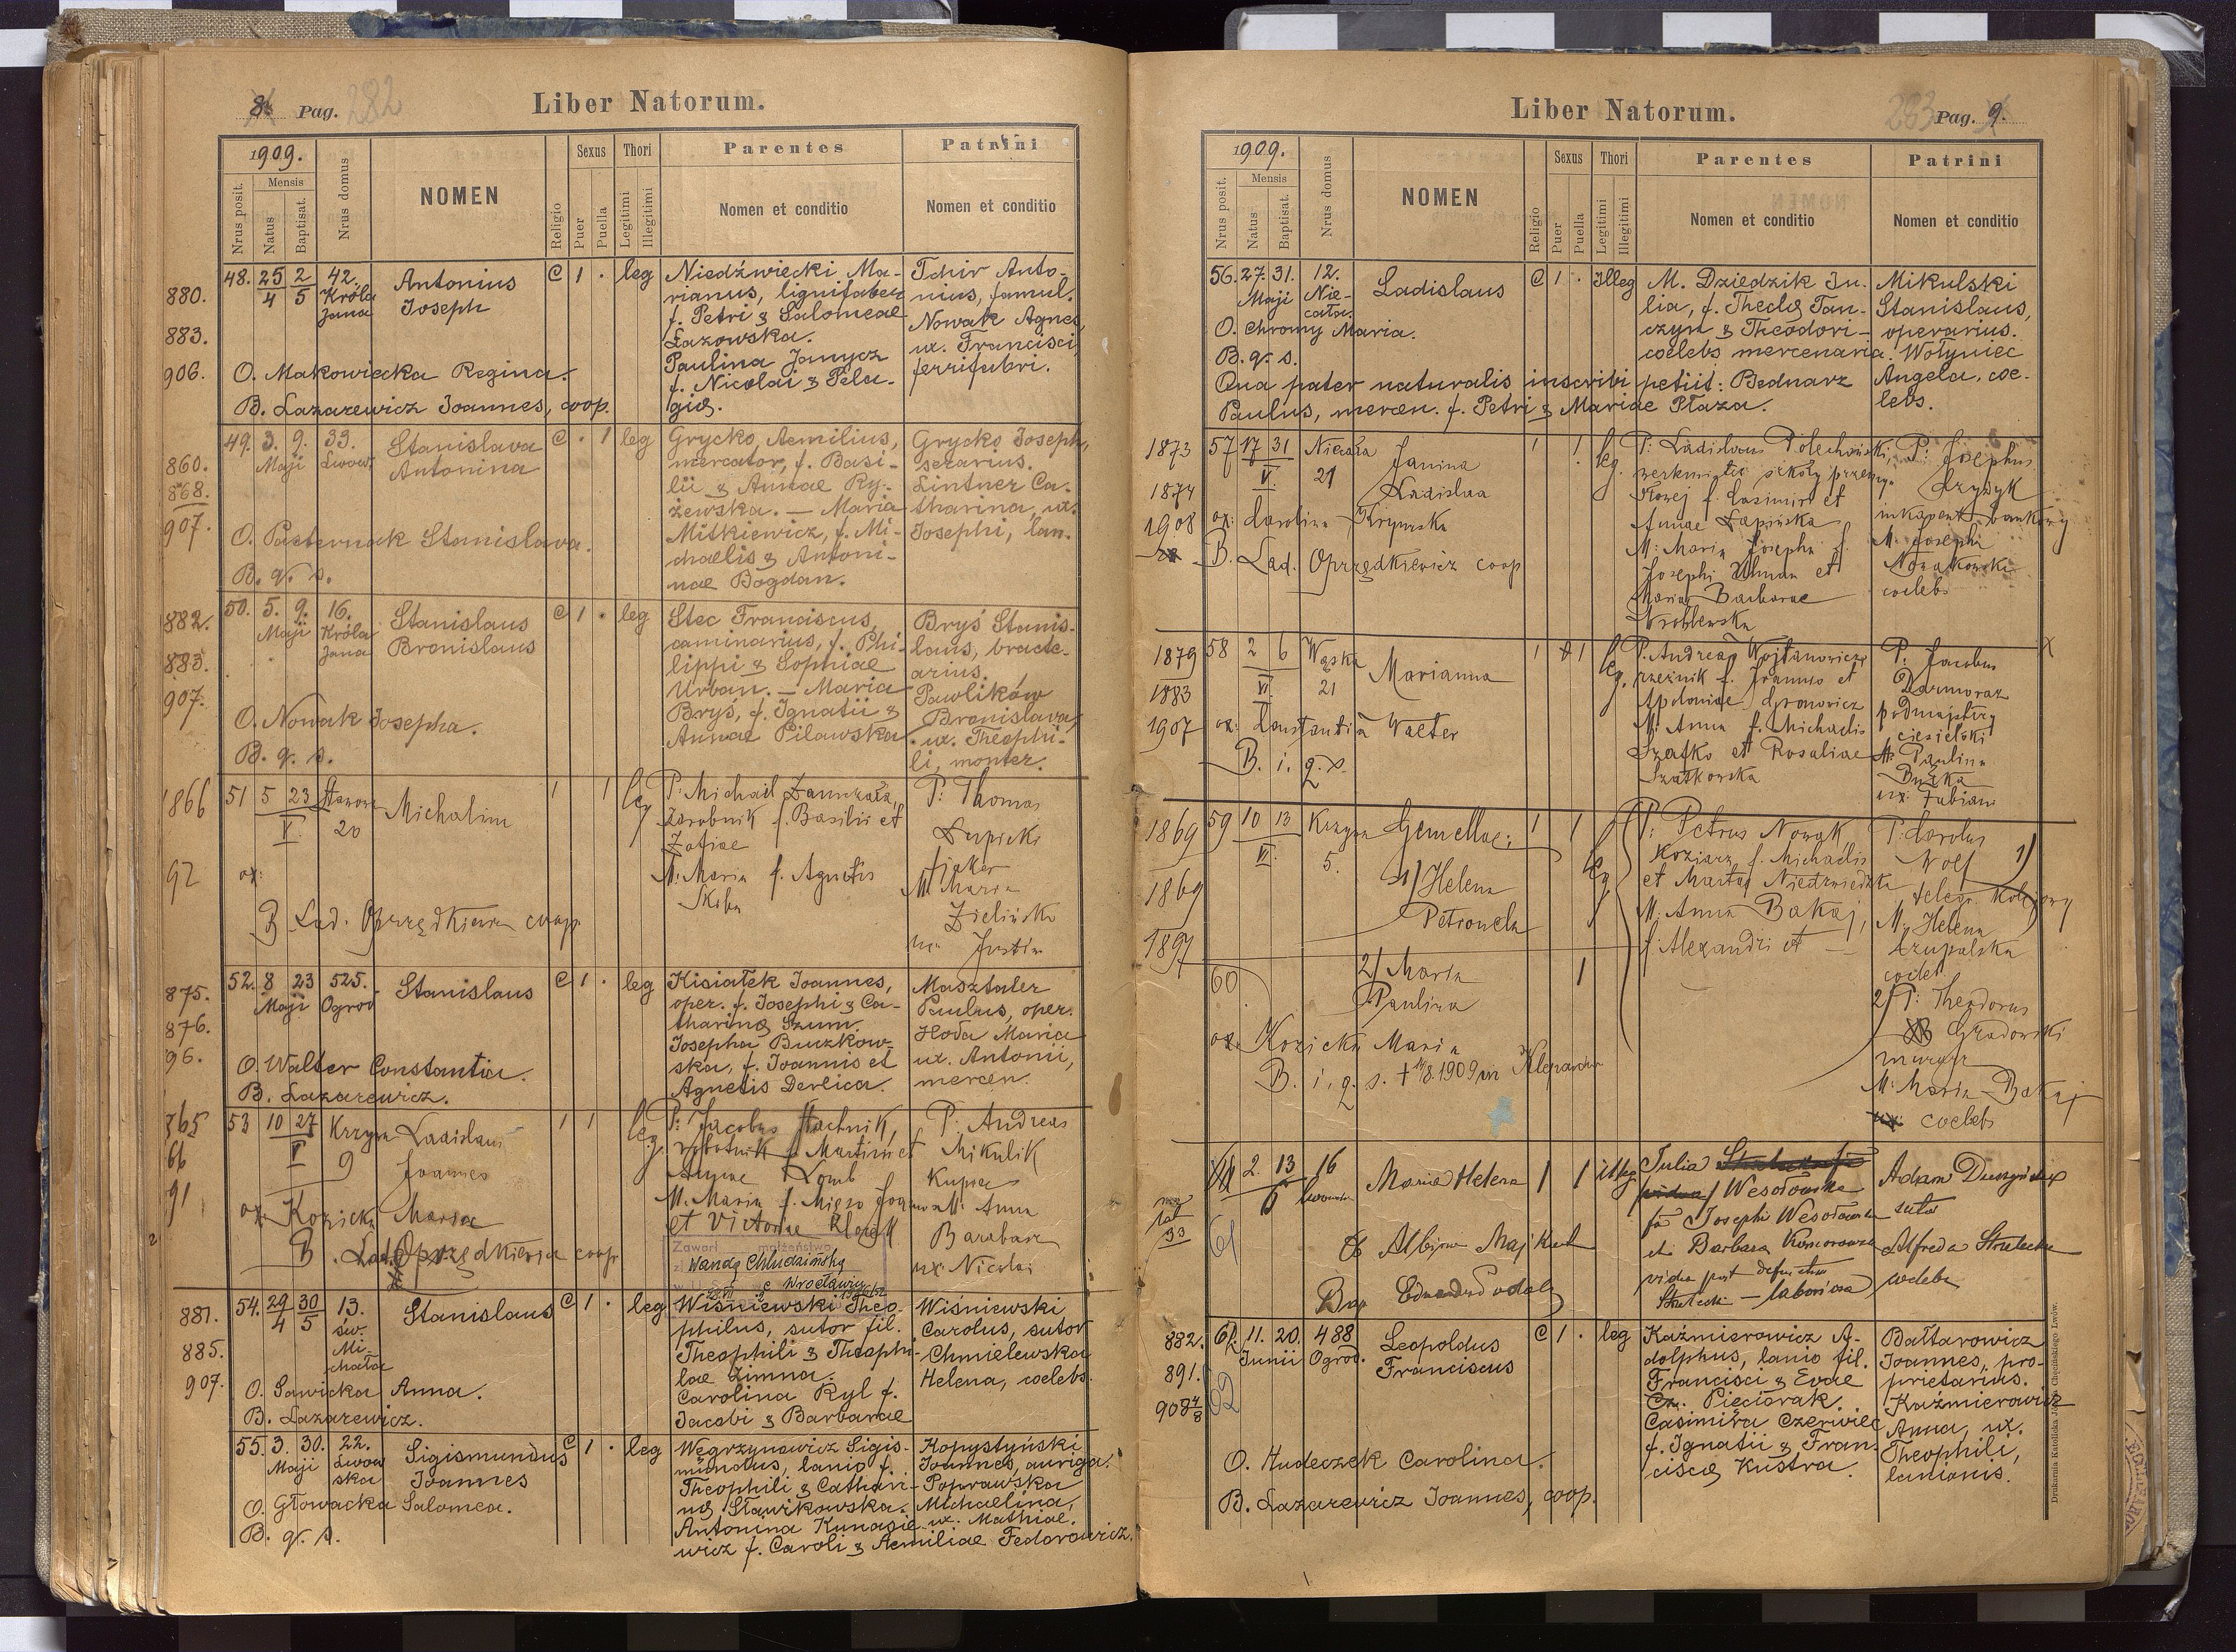 8. Pag. 282
Liber Natorum.
1909.
Nrus posit.
Mensis
Natus
Baptisat.
Nrus domus
NOMEN
Religio
Sexus
Puer
Puella
Thori
Legitimi
Illegitimi
Parentes
Nomen et conditio
Patrini
Nomen et conditio
880.
883.
906.
48. 25/4 2/5 42. Króla Jana
Antonius
Joseph
C 1 . leg
Niedźwiecki Ma-
rianus, lignifaber
f. Petri & Salomeae
Łazowska.
Paulina Janycz
f. Nicolai & Pela-
giæ.
Tchir Anto-
nius, famul.
Nowak Agnes,
ux. Francisci,
ferrifabri.
O. Makowiecka Regina.
B. Lazarewicz Joannes, coop.
860.
868.
907.
49. 3. 9. Maji 33. Lwow.
Stanislava
Antonina
C . 1 leg
Grycko, Aemilius,
mercator, f. Basi-
lii & Annae Ry-
żewska. — Maria
Mitkiewicz, f. Mi-
chaelis & Antoni-
nae Bogdan.
Grycko Joseph,
serarius.
Lintner Ca-
tharina, ux.
Josephi, lan.
O. Pasternack Stanislava.
B. q. s.
882.
883.
907.
50. 5. 9. Maji 16. Króla Jana
Stanislaus
Bronislaus
C 1 . leg
Stec Franciscus,
caminarius, f. Phi-
lippi & Sophiae
Urban. — Maria
Bryś, f. Ignatii &
Annae Pilawska.
Bryś Stanis-
laus, bracte-
arius.
Pawlików
Bronislava,
ux. Theophi-
li, monter.
O. Nowak Josepha.
B. q. s.
1866
92
51 5 23 V. 20
Michalina
1 1 leg
P: Michael
zarobnik f. Basilii et
Zofiae
M: Maria f. Agnetis
Skiba
P: Thomas
Łupicki
fiaker
M: Maria
Zielińska
ux: Justin
ox:
B. Lad. Oprzędkiewicz coop.
875.
876.
96.
52. 8 23 Maji 525. Ogrod.
Stanislaus
C 1 . leg
Kisiałek Joannes,
oper. f. Josephi & Ca-
tharinæ Szum.
Josepha Buczkow-
ska, f. Joannis et
Agnetis Derlica.
Masztaler
Paulus, oper.
Hoda Maria
ux. Antonii,
mercen.
O. Walter Constantia.
B. Lazarewicz.
865
66
91
53 10 27 V 9
Ladislaus
Joannes
1 1 leg.
P: Jacobus Stachnik,
robotnik f. Martini et
M: Maria f.
et Victoriae
P. Andreas
Mikulik
kupiec
M: Anna
Barabasz
ux: Nicolai
ox. Kozicka Maria
B. Lad. Oprzędkiewicz coop
Zawarł małżeństwo
z Wandą Chludzińską
Wrocławiu
881.
885.
907.
54. 29/4 30/5 13. św. Mi-
chała
Stanislaus
C 1 . leg
Wiśniewski Theo-
philus, sutor fil.
Theophili & Theophi-
lae Zimna.
Carolina Ryl f.
Jacobi & Barbarae
Wiśniewski
Carolus, sutor
Chmielewska
Helena, coelebs.
O. Sawicka Anna.
B. Lazarewicz.
55. 3. 30. Maji 22. Lwow
ska
Sigismundus
Joannes
C 1 . leg
Węgrzynowicz Sigis-
mundus, lanio f.
Theophili & Cathari-
næ Sławikowska.
Antonina Kunasie-
wicz f. Caroli & Aemiliae Fedorowicz.
Kopystyński
Joannes, auriga.
Poprawska
Michaelina,
ux. Mathiae.
O. Głowacka Salomea.
B. q. s.
Liber Natorum.
283 Pag. 9.
1909.
Nrus posit.
Mensis
Natus
Baptisat.
Nrus domus
NOMEN
Religio
Sexus
Puer
Puella
Thori
Legitimi
Illegitimi
Parentes
Nomen et conditio
Patrini
Nomen et conditio
56. 27. 31. Maji 12. Nie-
cała.
Ladislaus
C 1 . Illeg
M. Dziedzik Ju-
lia, f. Theclæ Tan-
czyn & Theodori-
coelebs mercenaria.
Mikulski
Stanislaus,
operarius.
Wołyniec
Angela, coe-
lebs.
O. Chromy Maria.
B. q. s.
Qua pater naturalis inscribi petiit: Bednarz
Paulus, mercen. f. Petri & Mariae Płaza.
1873
1874
1908
57 17 31 V. Niecała 21
Janina
Ladislaa
1 1 leg.
P: Ladislaus
f. Casimiri et
Annae Łapińska
M: Maria Josepha f.
Josephi Uhman et
Mariae Barbarae
Wróblewska
P: Josephus
inkasent bankowy
M: Josepha
Nowakowska
coelebs
ox: Carolina
B. Lad. Oprzędkiewicz coop
1879
1883
1907
58 2 6 VI. Wąska 21
Marianna
1 1 leg.
P. Andreas Wojtanowicz
rzeźnik f. Joannis et
Apoloniae Gronowicz
M: Anna f. Michaelis
Szatko et Rosaliae
Szatkowska
P: Jacobus
Darmoraz
podmajstrzy
ciesielski
M: Paulina
Buzka
ux: Fabiani
ox: Constantia Walter
B. i. q. s.
1869
1869
1897
59 10 13 VI. 5.
Gemellae:
1/ Helena
Petronela
1 1 leg
P: Petrus Nowak,
f. Michaelis
et Marthæ Niedzwiedzka
M: Anna Bakaj,
f. Alexandri et —
P: Carolus
Wolf 1)
telegr. kolejowy
M: Helena
Czupalska
coelebs
60
2/ Maria
Paulina
1
2/ P: Theodorus
Gradowski
murarz
M: Maria Bakaj
coelebs
ox. Kozicka Maria
B. i. q. s. † 14/8. 1909 in Kleparów
61
2. 13 6 16
Maria Helena
1 1 illeg
Julia
Wesołowska
fa Josephi Wesołowski
et Barbara Komorowska
vidua post defunctum
Strelecki —
Adam
sutor
Alfreda Strelecka
coelebs
Ob Albina Majkut
Bap Eduardus Podolz
882.
891.
908 4/8
62
11. 20. Junii 488 Ogrod.
Leopoldus
Franciscus
C 1 . leg
Kaźmierowicz A-
dolphus, lanio fil.
Francisci & Evae
Pięciorak.
Casimira Czerwiec
f. Ignatii & Fran-
ciscæ Kustra.
Bałtarowicz
Joannes, pro-
prietarius.
Kaźmierowicz
Anna, ux.
Theophili,
lanionis.
O. Hudeczek Carolina.
B. Lazarewicz Joannes, coop.
Drukarnia Katolicka Józefa Chęcińskiego Lwów.